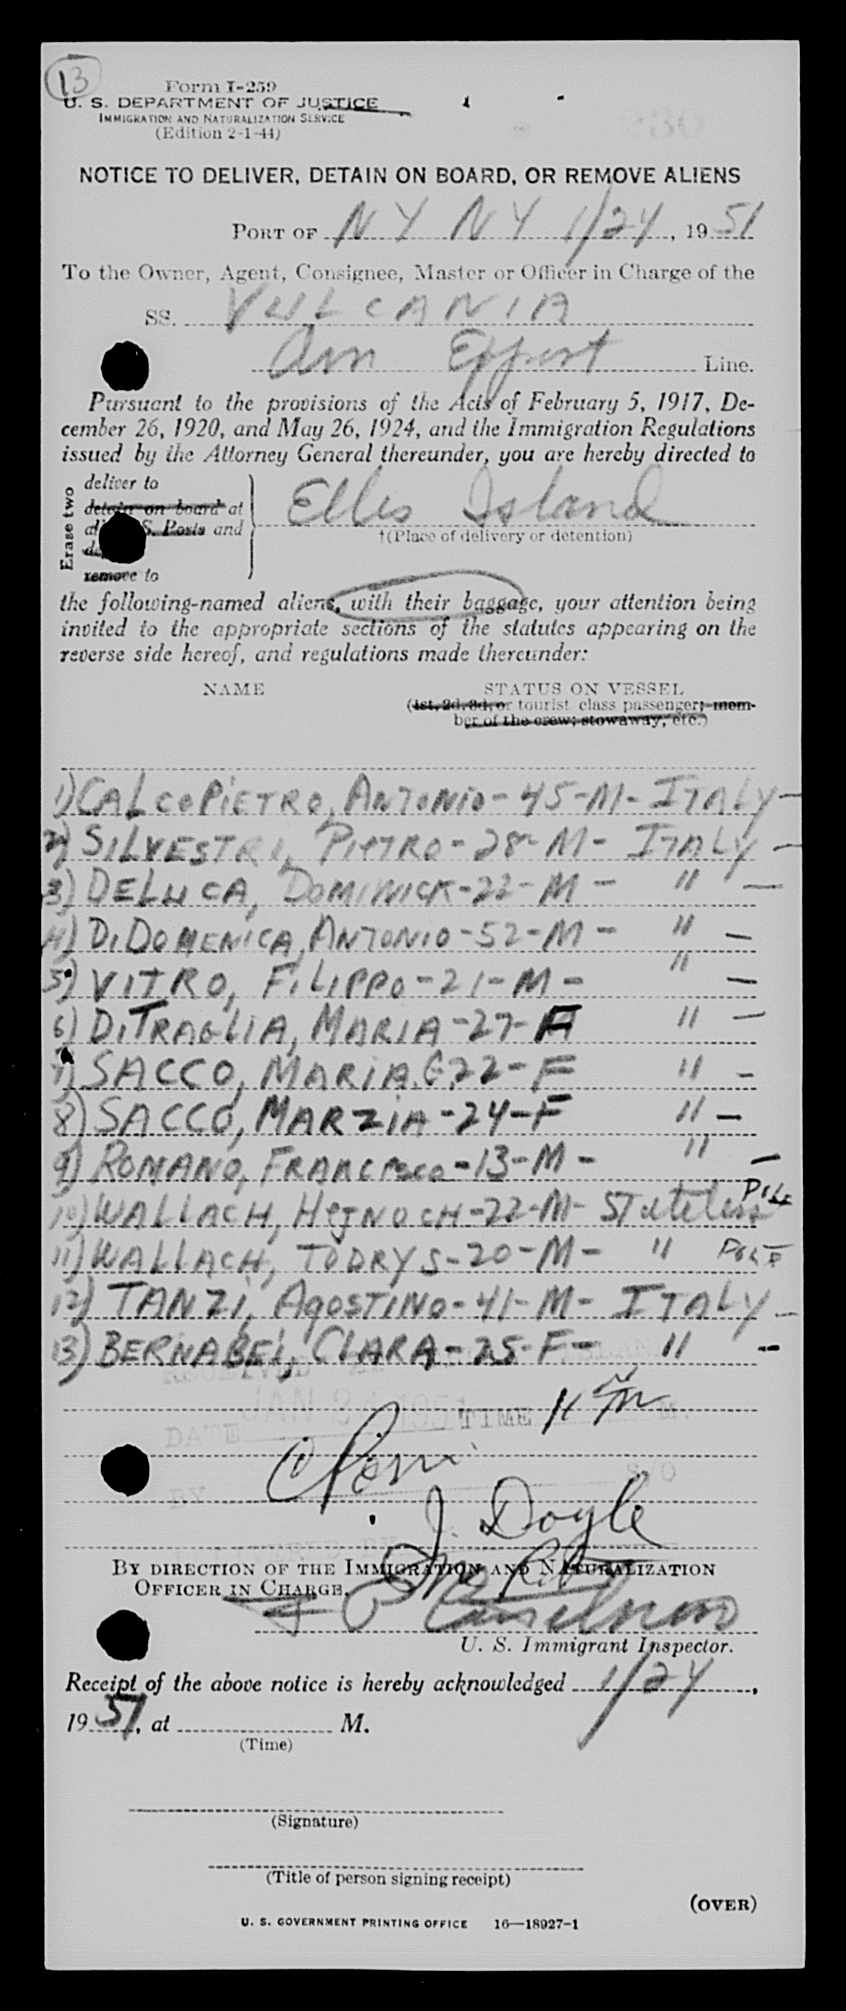 13
Form I-259
U. S. DEPARTMENT OF JUSTICE
IMMIGRATION AND NATURALIZATION SERVICE
(Edition 2-1-44)
NOTICE TO DELIVER, DETAIN ON BOARD, OR REMOVE ALIENS
PORT OF NY NY 1/24, 1951
To the Owner, Agent, Consignee, Master or Officer in Charge of the
SS. VULCANIA
Am Export Line.
Pursuant to the provisions of the Acts of February 5, 1917, De-
cember 26, 1920, and May 26, 1924, and the Immigration Regulations
issued by the Attorney General thereunder, you are hereby directed to
Erase two
deliver to
detain on board at
S. Posts and
remove to
Ellis Island
†(Place of delivery or detention)
the following-named aliens, with their baggage, your attention being
invited to the appropriate sections of the statutes appearing on the
reverse side hereof, and regulations made thereunder:
NAME STATUS ON VESSEL
(1st, 2d, 3d, or tourist class passenger; mem-
ber of the crew; stowaway, etc.)
1) CALCOPIETRO, ANTONIO-45-M- ITALY -
2) SILVESTRI, PIETRO-28-M- ITALY -
3) DELUCA, DOMINICK-22-M- " -
4) DIDOMENICA, ANTONIO-52-M- " -
5) VITRO, FILIPPO-21-M- " -
6) DITRAGLIA, MARIA-27-F " -
7) SACCO, MARIA.G.22-F " -
8) SACCO, MARZIA-24-F " -
9) ROMANO, FRANCISCO-13-M- " -
10) WALLACH, HEJNOCH-22-M- Stateless POLE
11) WALLACH, TODRYS-20-M- " POLE
12) TANZI, AGOSTINO-41-M- ITALY -
13) BERNABEI, CLARA-25-F- " -
RECEIVED
DATE JAN 24 1951 TIME 11 M.
BY
J. Doyle
BY DIRECTION OF THE IMMIGRATION AND NATURALIZATION
OFFICER IN CHARGE.
U. S. Immigrant Inspector.
Receipt of the above notice is hereby acknowledged 1/24,
1951, at M.
(Time)
(Signature)
(Title of person signing receipt)
(OVER)
U. S. GOVERNMENT PRINTING OFFICE 16—18927-1